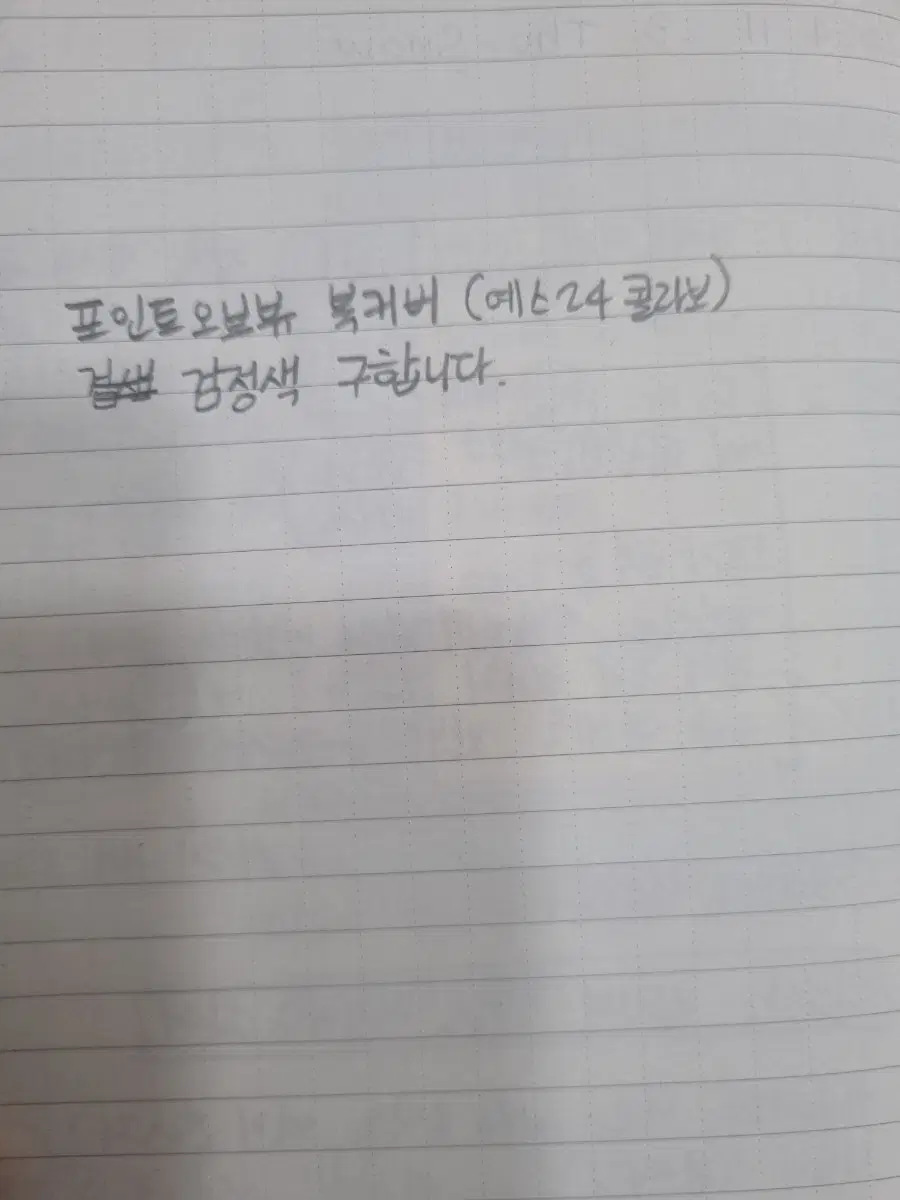 포인트오브뷰 북커버 (예스24 콜라보)
검정색 구합니다.